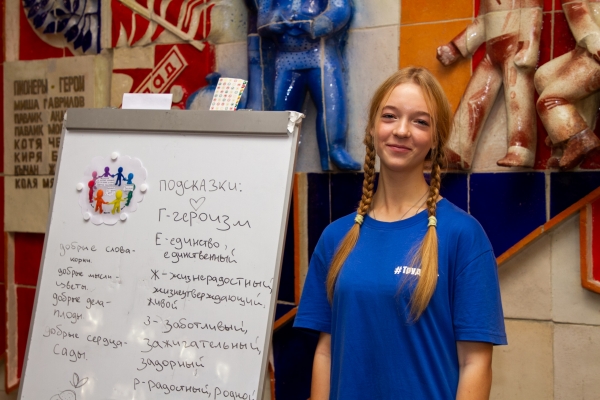 ПИОНЕРЫ - ГЕРОИ
МИША ГАВРИЛОВ
ПАВЛИК
ПАВЛИК
КОТЯ
КИРЯ
КОЛЯ
ПОДСКАЗКИ:
Г-героизм
Е-единство,
единственный
Ж-жизнерадостный,
жизнеутверждающий,
живой
З-Заботливый,
Зажигательный,
задорный
Р-радостный, родной
добрые слова-
корни.
добрые мысли-
цветы.
добрые дела-
плоды
добрые сердца-
Сады.